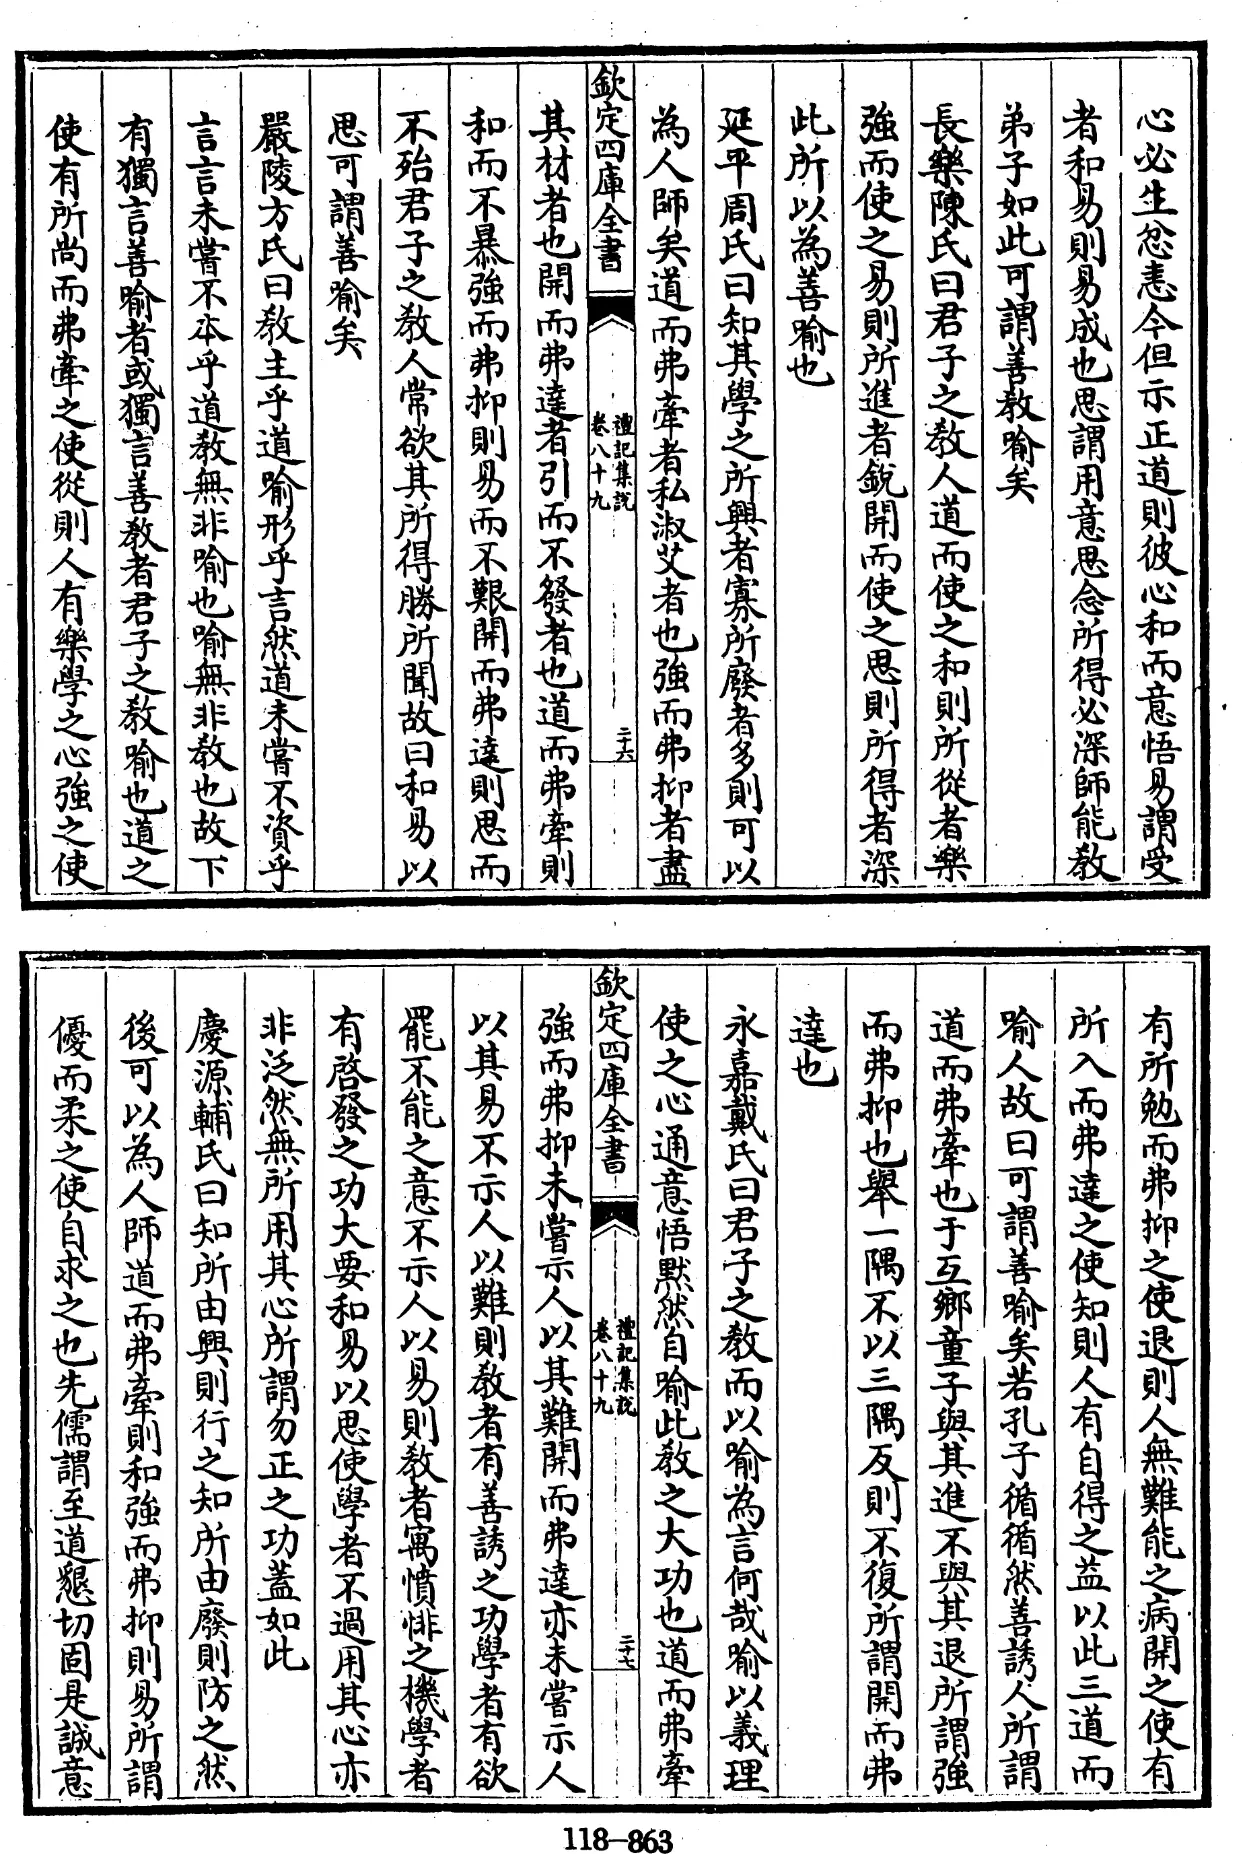 心必生忿恚今但示正道則彼心和而意悟易謂受
者和易則易成也思謂用意思念所得必深師能教
弟子如此可謂善教喻矣
長樂陳氏曰君子之教人道而使之和則所從者樂
強而使之易則所進者銳開而使之思則所得者深
此所以為善喻也
延平周氏曰知其學之所興者寡所廢者多則可以
為人師矣道而弗牽者私淑艾者也強而弗抑者盡
欽定四庫全書
禮記集說
卷八十九
二十六
其材者也開而弗達者引而不發者也道而弗牽則
和而不暴強而弗抑則易而不艱開而弗達則思而
不殆君子之教人常欲其所得勝所聞故曰和易以
思可謂善喻矣
嚴陵方氏曰教主乎道喻形乎言然道未嘗不資乎
言言未嘗不本乎道教無非喻也喻無非教也故下
有獨言善喻者或獨言善教者君子之教喻也道之
使有所尚而弗牽之使從則人有樂學之心強之使
有所勉而弗抑之使退則人無難能之病開之使有
所入而弗達之使知則人有自得之益以此三道而
喻人故曰可謂善喻矣若孔子循循然善誘人所謂
道而弗牽也于互鄉童子與其進不與其退所謂強
而弗抑也舉一隅不以三隅反則不復所謂開而弗
達也
永嘉戴氏曰君子之教而以喻為言何哉喻以義理
使之心通意悟默然自喻此教之大功也道而弗牽
欽定四庫全書
禮記集說
卷八十九
二十七
強而弗抑未嘗示人以其難開而弗達亦未嘗示人
以其易不示人以難則教者有善誘之功學者有欲
罷不能之意不示人以易則教者寓憤悱之機學者
有啓發之功大要和易以思使學者不過用其心亦
非泛然無所用其心所謂勿正之功蓋如此
慶源輔氏曰知所由興則行之知所由廢則防之然
後可以為人師道而弗牽則和強而弗抑則易所謂
優而柔之使自求之也先儒謂至道懇切固是誠意
118-863